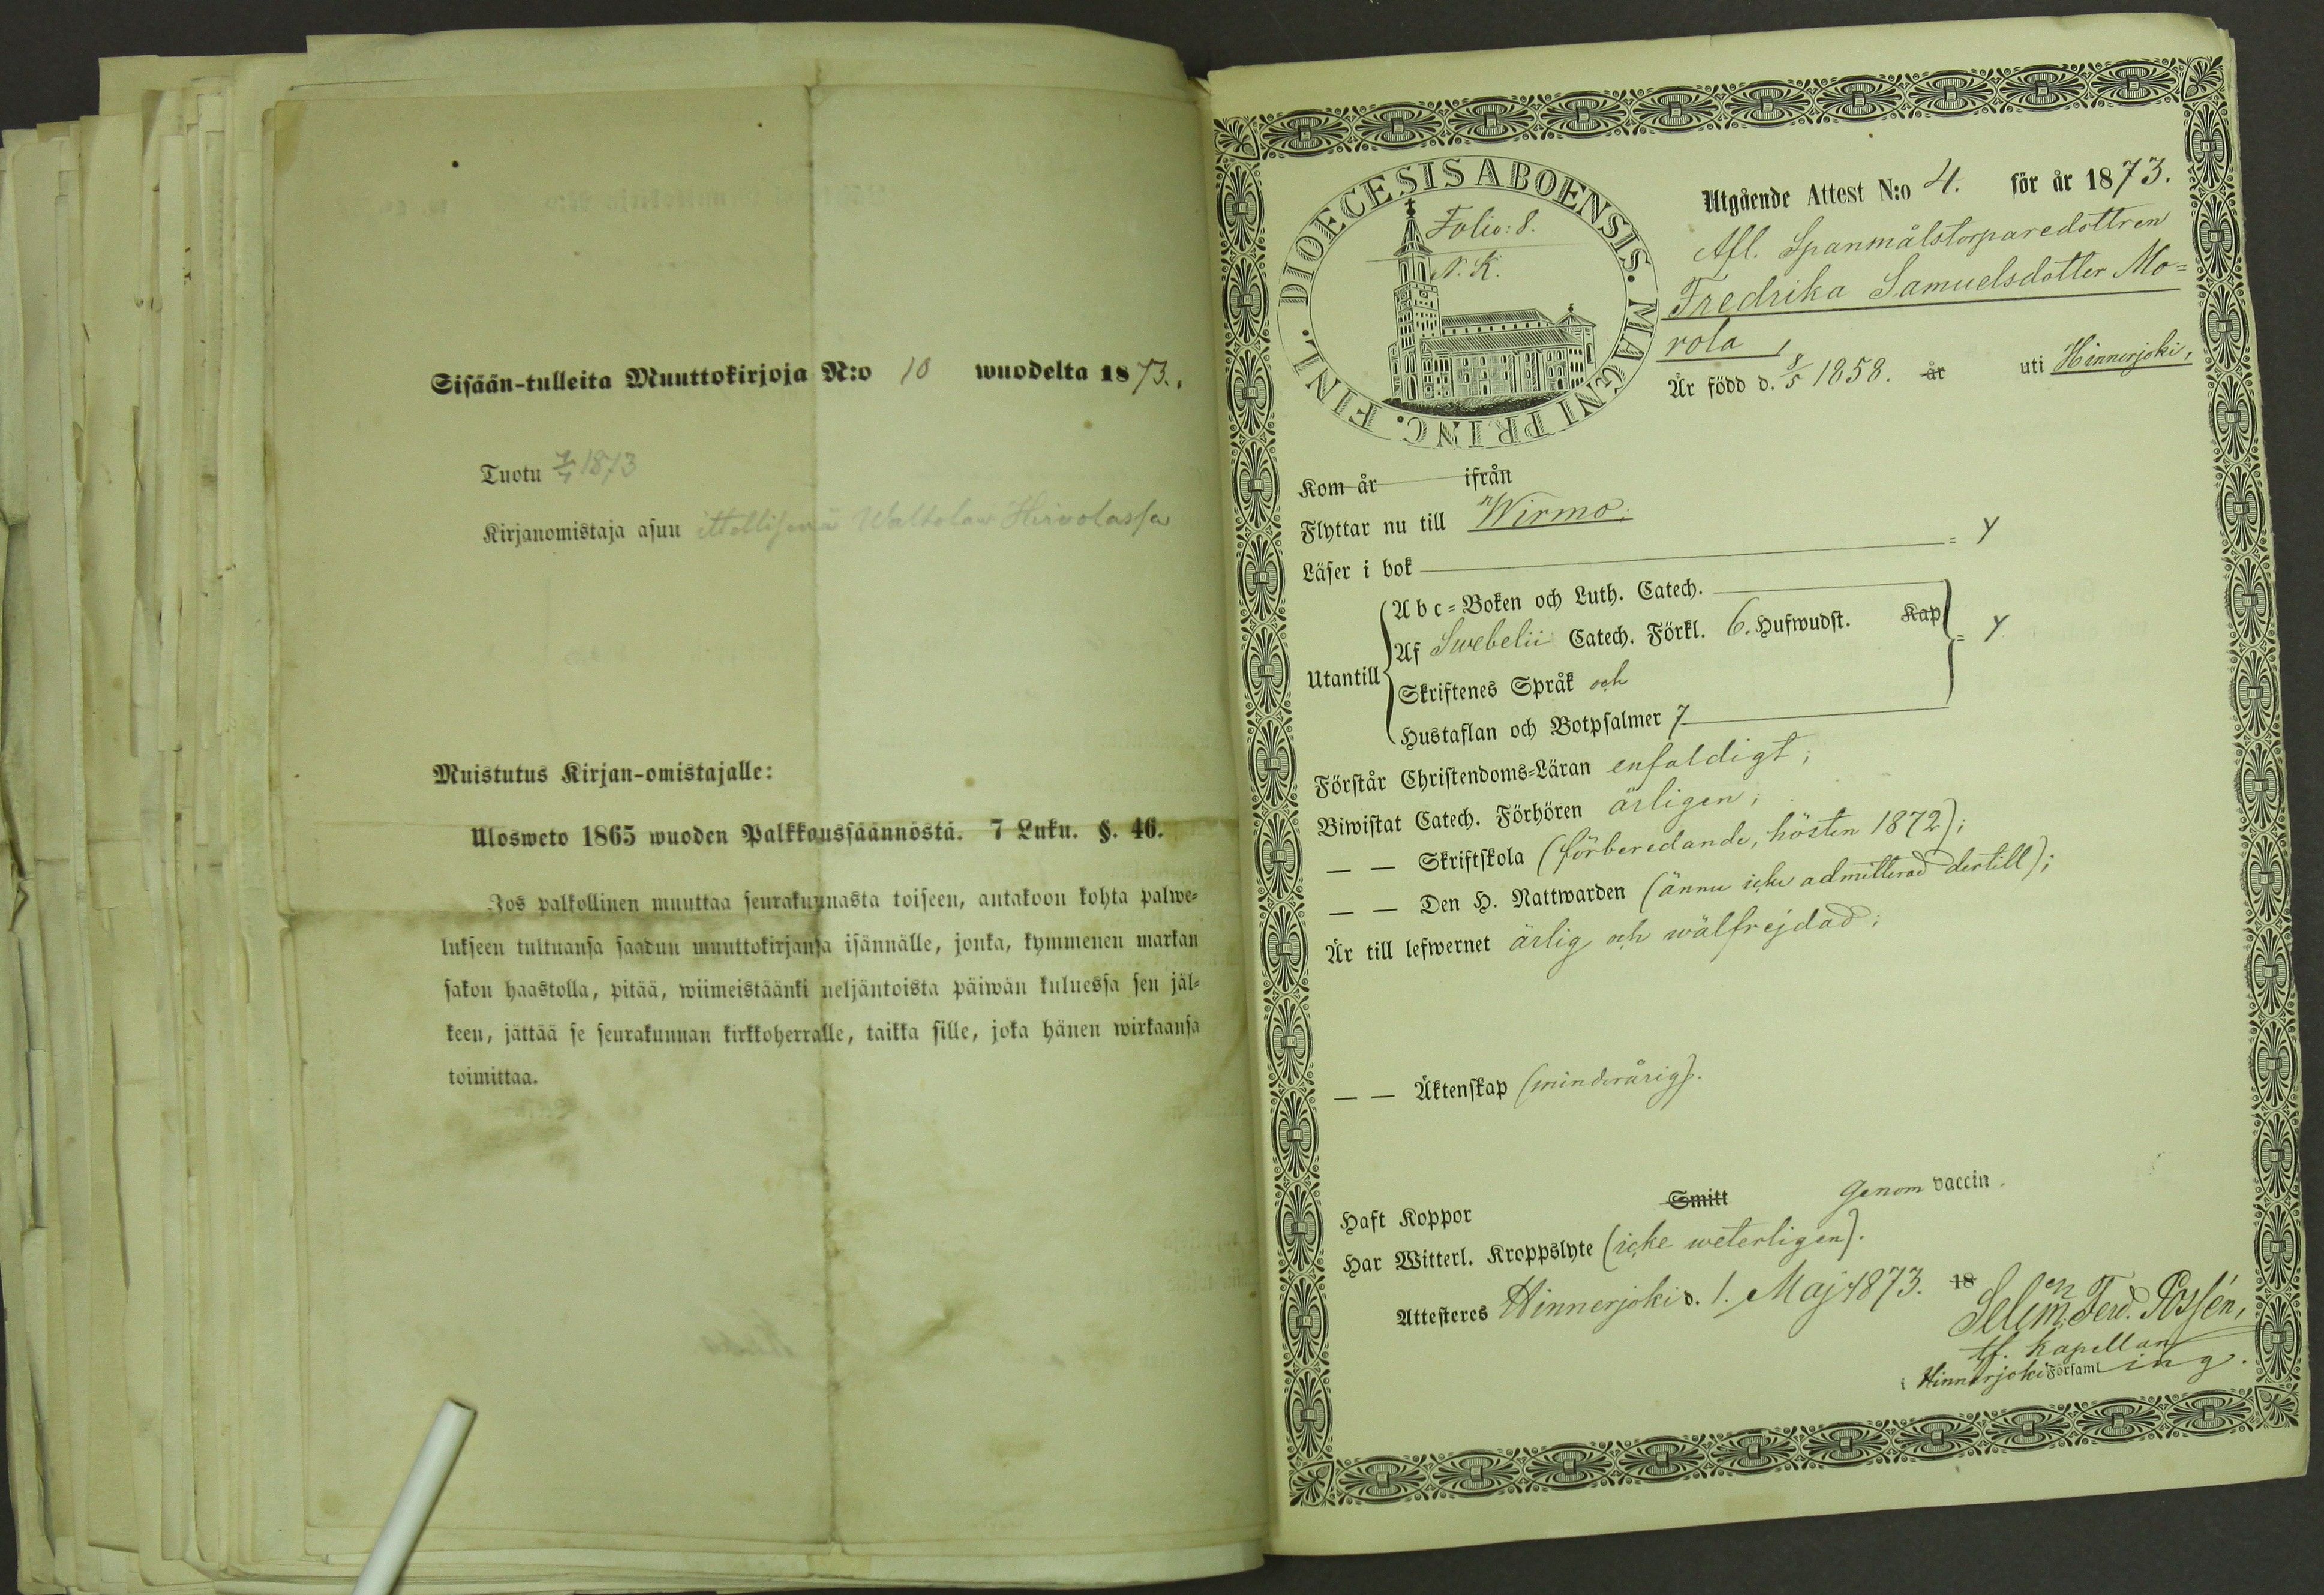 Sisään-tulleita Muuttokirjoja N:o 10 wuodelta 1873.
Tuotu 1873
Kirjanomistaja asuu ittellisenä Waltolan Hirvolassa
Muistutus Kirjan-omistajalle:
Ulosweto 1865 wuoden Palkkaussäännöstä. 7 Luku. §. 46.
Jos palkollinen muuttaa seurakunnasta toiseen, antakoon kohta palwe-
lukseen tultuansa saadun muuttokirjansa isännälle, jonka, kymmenen markan
sakon haastolla, pitää, wiimeistäänki neljäntoista päiwän kuluessa sen jäl-
keen, jättää se seurakunnan kirkkoherralle, taikka sille, joka hänen wirkaansa
toimittaa.
DIOECESIS ABOENSIS. MAGNI PRINC. FINL.
Folio: 8.
N. K.
Utgående Attest N:o 4. för år 1873.
Afl. Spanmålstorparedottren
Fredrika Samuelsdotter Mo=
rola,
Är född d. 8/5 1858. år uti Hinnerjoki,
Kom år ifrån
Flyttar nu till Wirmo;
Läser i bok = Y
Utantill
Abc=Boken och Luth. Catech.
Af Swebelii Catech. Förkl. 6. Hufwudst. Kap = Y
Skriftenes Språk och
Hustaflan och Botpsalmer 7
Förstår Christendoms=Läran enfaldigt;
Biwistat Catech. Förhören årligen;
— — Skriftskola (förberedande, hösten 1872);
— — Den H. Nattwarden (ännu icke admitterad dertill);
Är till lefwernet ärlig och wälfrejdad;
— — Äktenskap (minderårig).
Haft Koppor Smitt genom vaccin.
Har Witterl. Kroppslyte (icke weterligen).
Attesteres Hinnerjoki d. 1. Maj 1873. 18
Selim Ferd. Rossén,
tf. kapellan
i Hinnerjoki Församling.